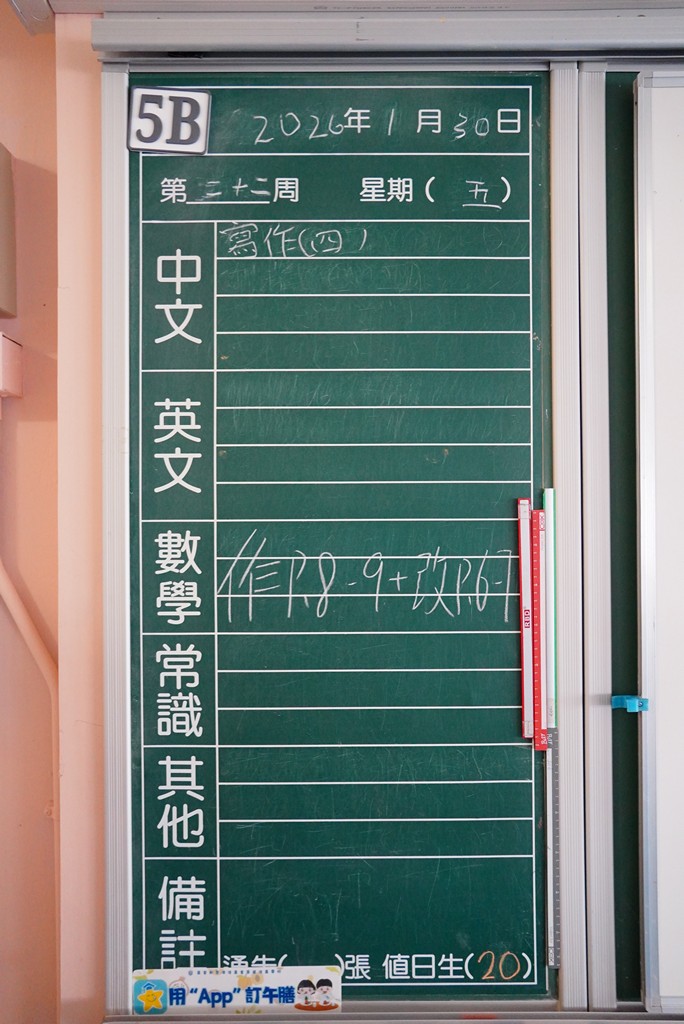 5B 2026年1月30日
第二十二周 星期(五)
中文 寫作(四)
英文
數學 作P.8-9+改P.6-7
常識
其他
備註
通告( )張 值日生(20)
用“App”訂午膳